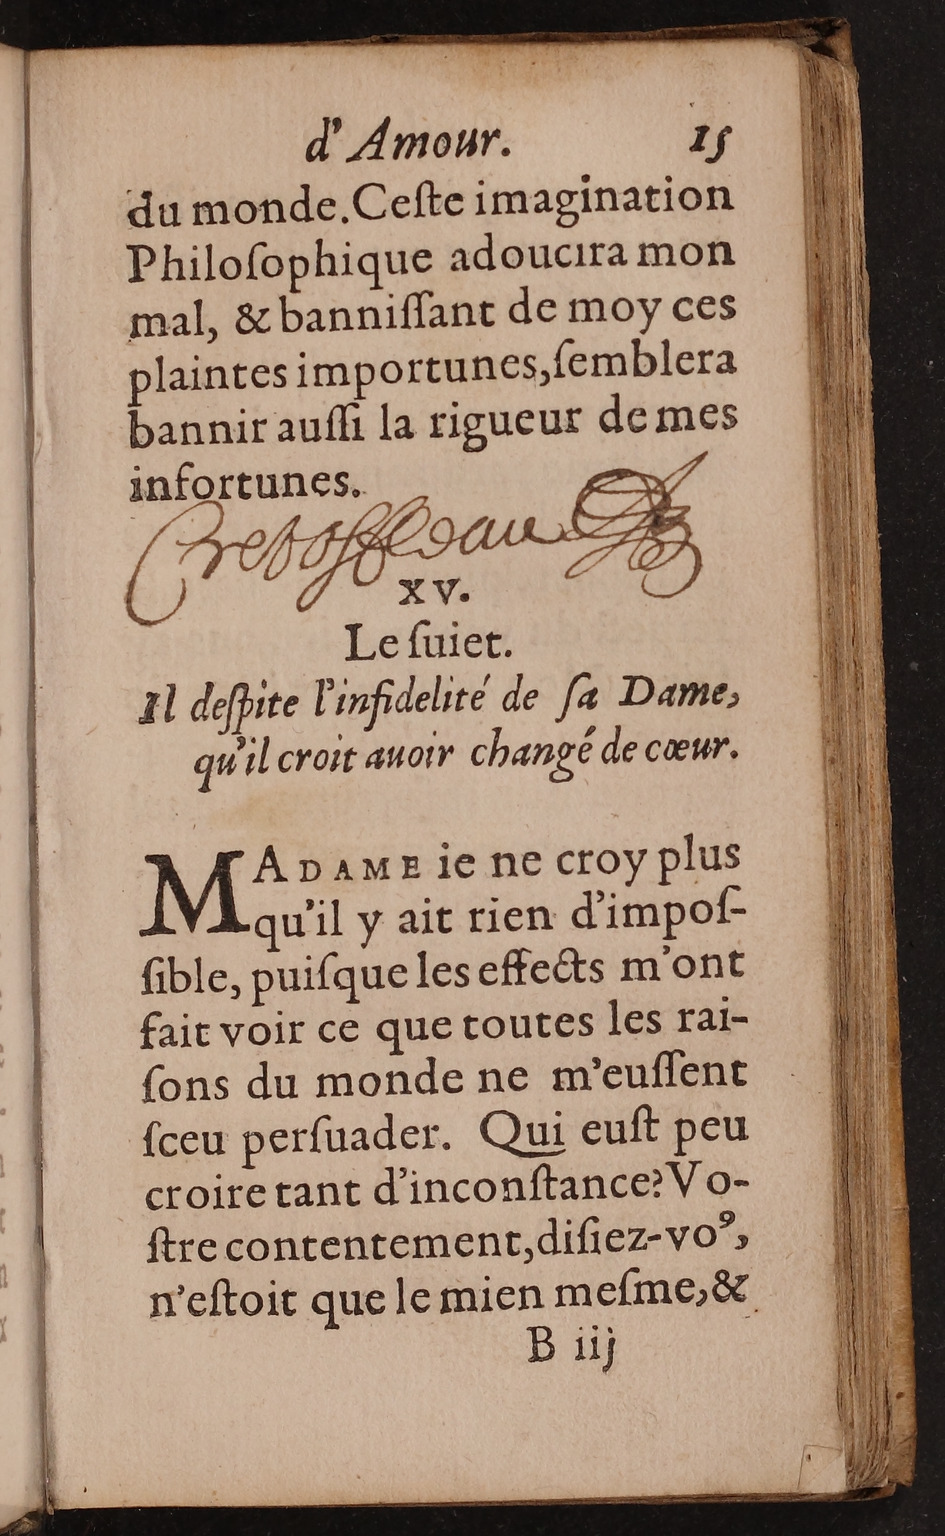 d'Amour. 15
du monde. Ceſte imagination
Philoſophique adoucira mon
mal, & banniſſant de moy ces
plaintes importunes, ſemblera
bannir auſſi la rigueur de mes
infortunes.
XV.
Le ſuiet.
Il deſpite l'infidelité de ſa Dame,
qu'il croit auoir changé de cœur.
MADAME ie ne croy plus
qu'il y ait rien d'impoſ-
ſible, puiſque les effects m'ont
fait voir ce que toutes les rai-
ſons du monde ne m'euſſent
ſceu perſuader. Qui euſt peu
croire tant d'inconſtance? Vo-
ſtre contentement, diſiez-voꝰ,
n'eſtoit que le mien meſme, &
B iij